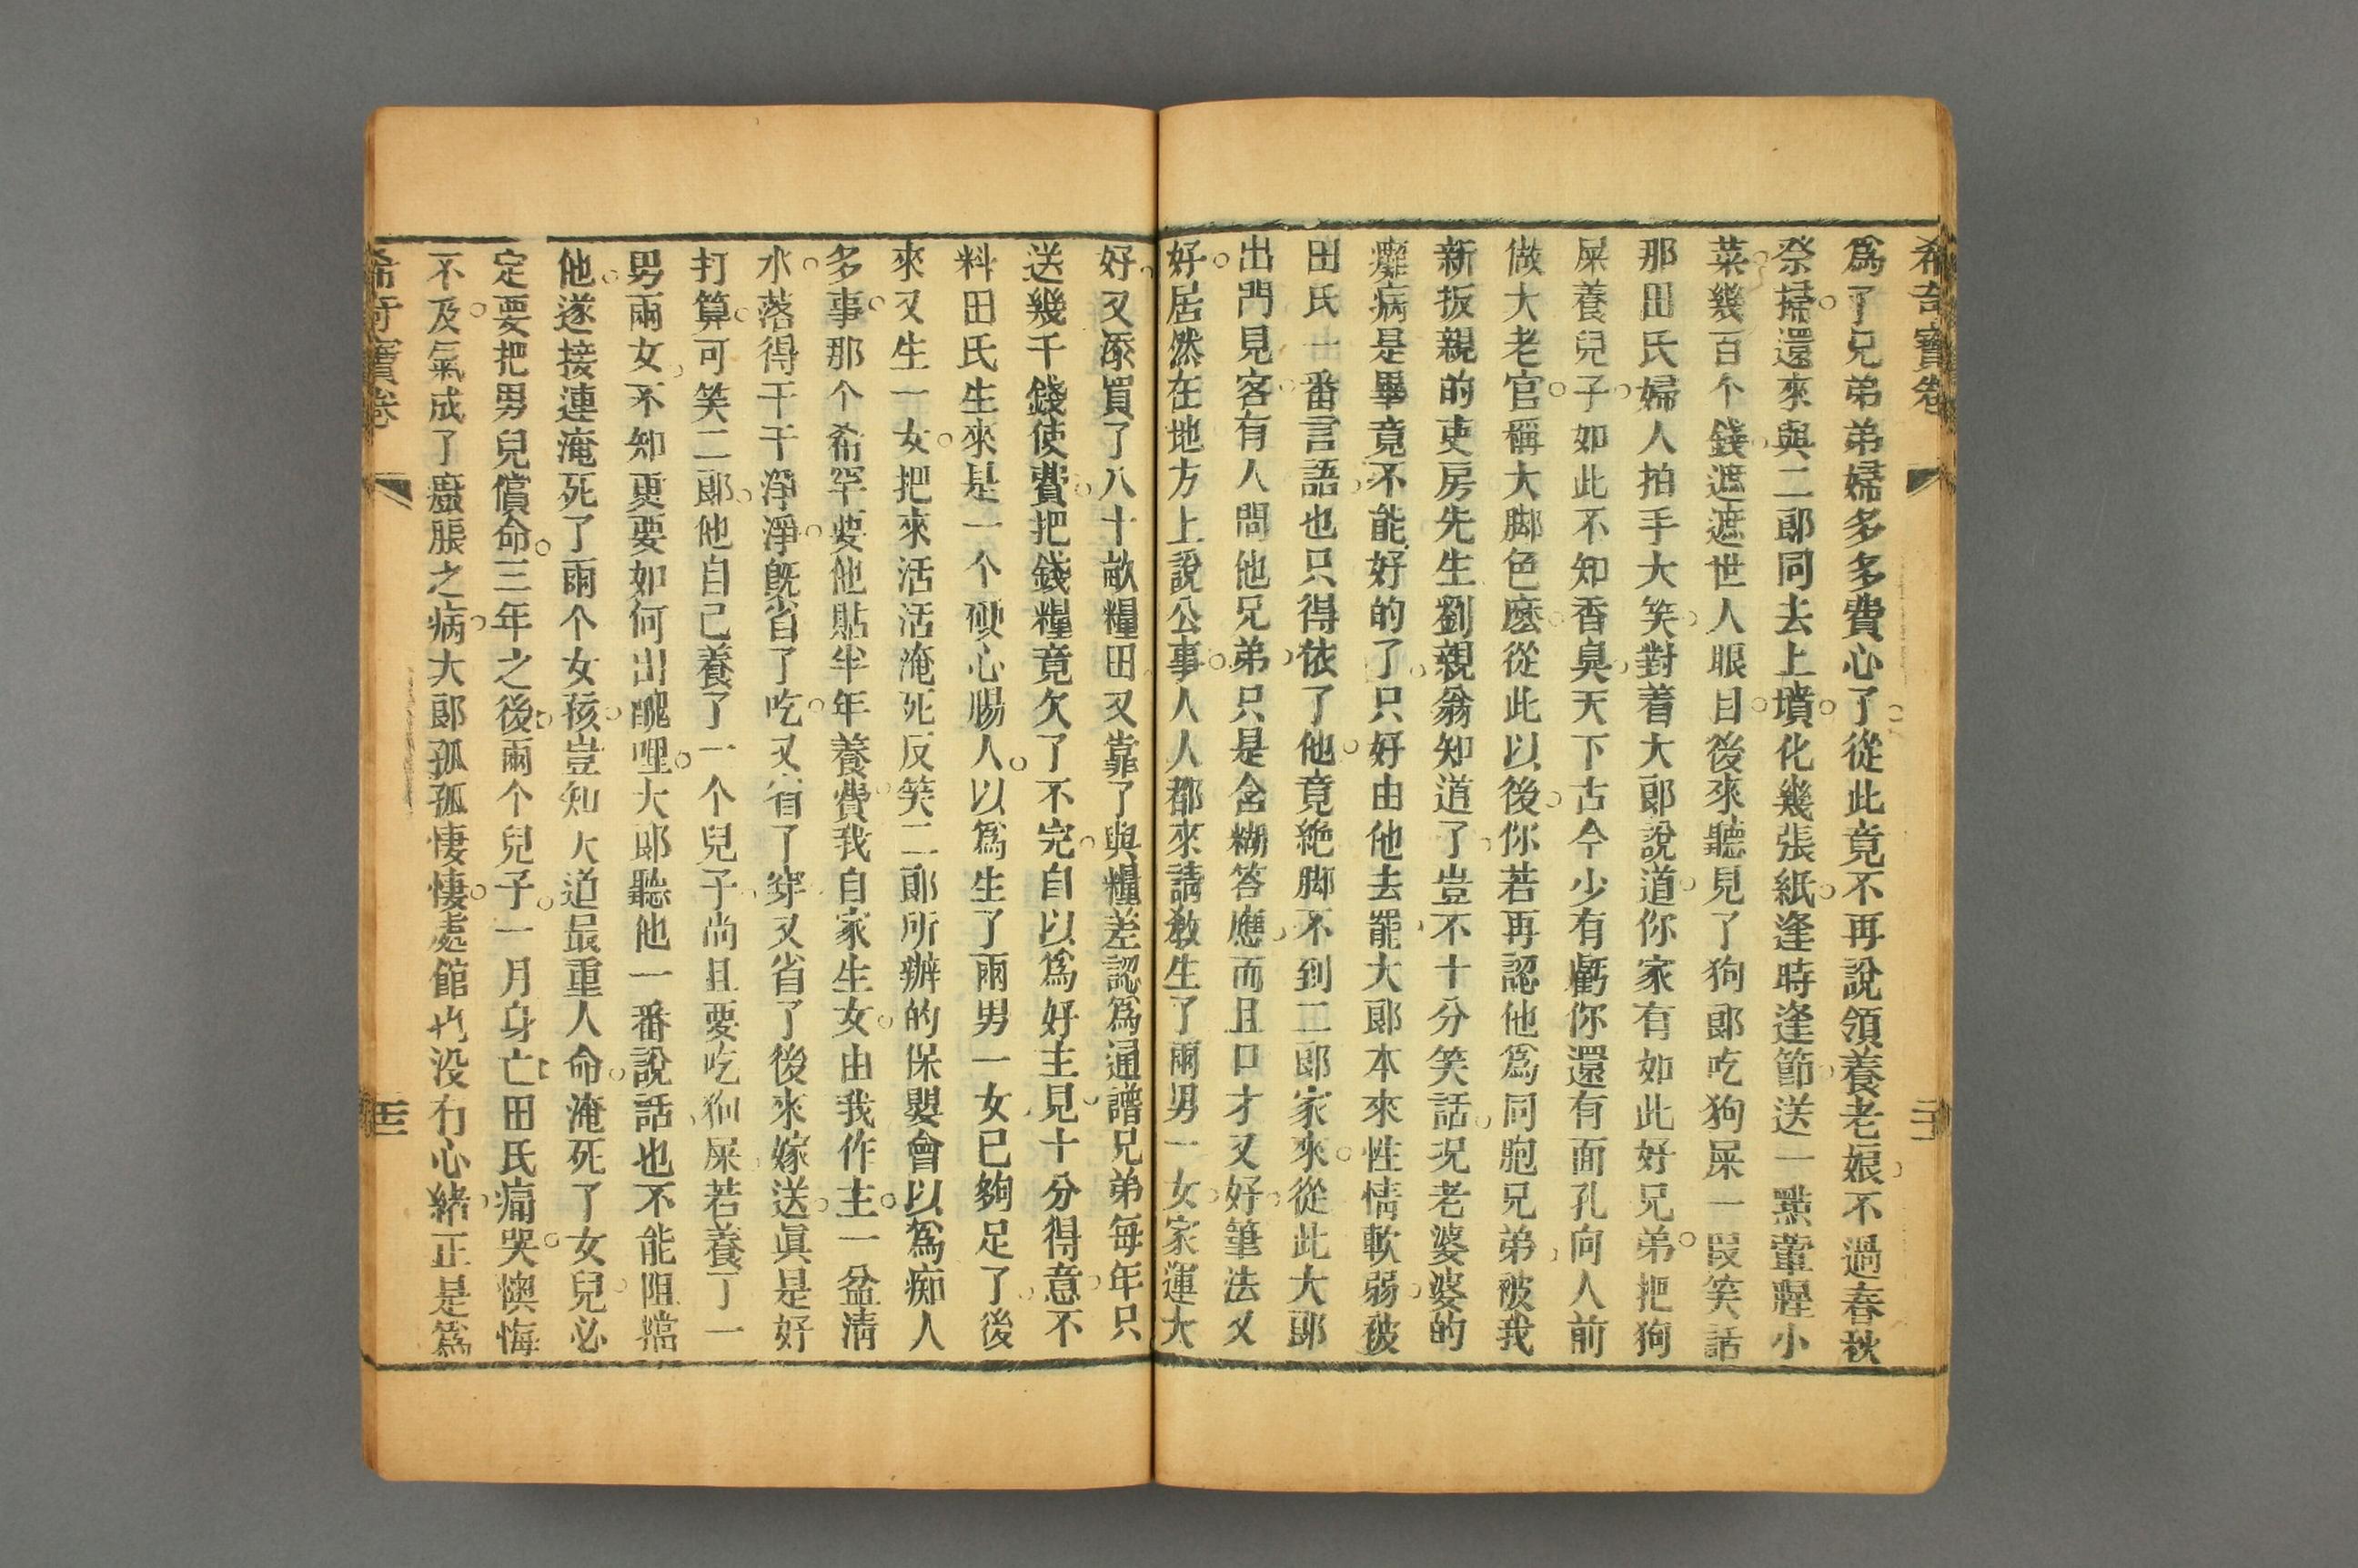 希奇寶卷
二十二
爲了兄弟弟婦多多費心了從此竟不再說領養老娘不過春秋
祭掃還來與二郎同去上墳化幾張紙逢時逢節送一點葷腥小
菜幾百个錢遮遮世人眼目後來聽見了狗郎吃狗屎一叚笑話
那田氏婦人拍手大笑對着大郎說道你家有如此好兄弟把狗
屎養兒子如此不知香臭天下古今少有虧你還有面孔向人前
做大老官稱大脚色麽從此以後你若再認他爲同胞兄弟被我
新扳親的吏房先生劉親翁知道了豈不十分笑話况老婆婆的
癱病是畢竟不能好的了只好由他去罷大郎本來性情軟弱被
田氏一番言語也只得依了他竟絶脚不到二郎家來從此大郎
出門見客有人問他兄弟只是含糊答應而且口才又好筆法又
好居然在地方上說公事人人都來請敎生了兩男一女家運大
好又添買了八十畝糧田又靠了與糧差認爲通譜兄弟每年只
送幾千錢使費把錢糧竟欠了不完自以爲好主見十分得意不
料田氏生來是一个硬心腸人以爲生了兩男一女已夠足了後
來又生一女把來活活淹死反笑二郎所辦的保嬰會以爲痴人
多事那个希罕要他貼半年養費我自家生女由我作主一盆淸
水落得干干淨淨旣省了吃又省了穿又省了後來嫁送眞是好
打算可笑二郎他自己養了一个兒子尚且要吃狗屎若養了一
男兩女不知更要如何出醜哩大郎聽他一番說話也不能阻擋
他遂接連淹死了兩个女孩豈知大道最重人命淹死了女兒必
定要把男兒償命三年之後兩个兒子一月身亡田氏痛哭懊悔
不及氣成了蠱脹之病大郎孤孤悽悽處館也没有心緒正是爲
希奇寶卷